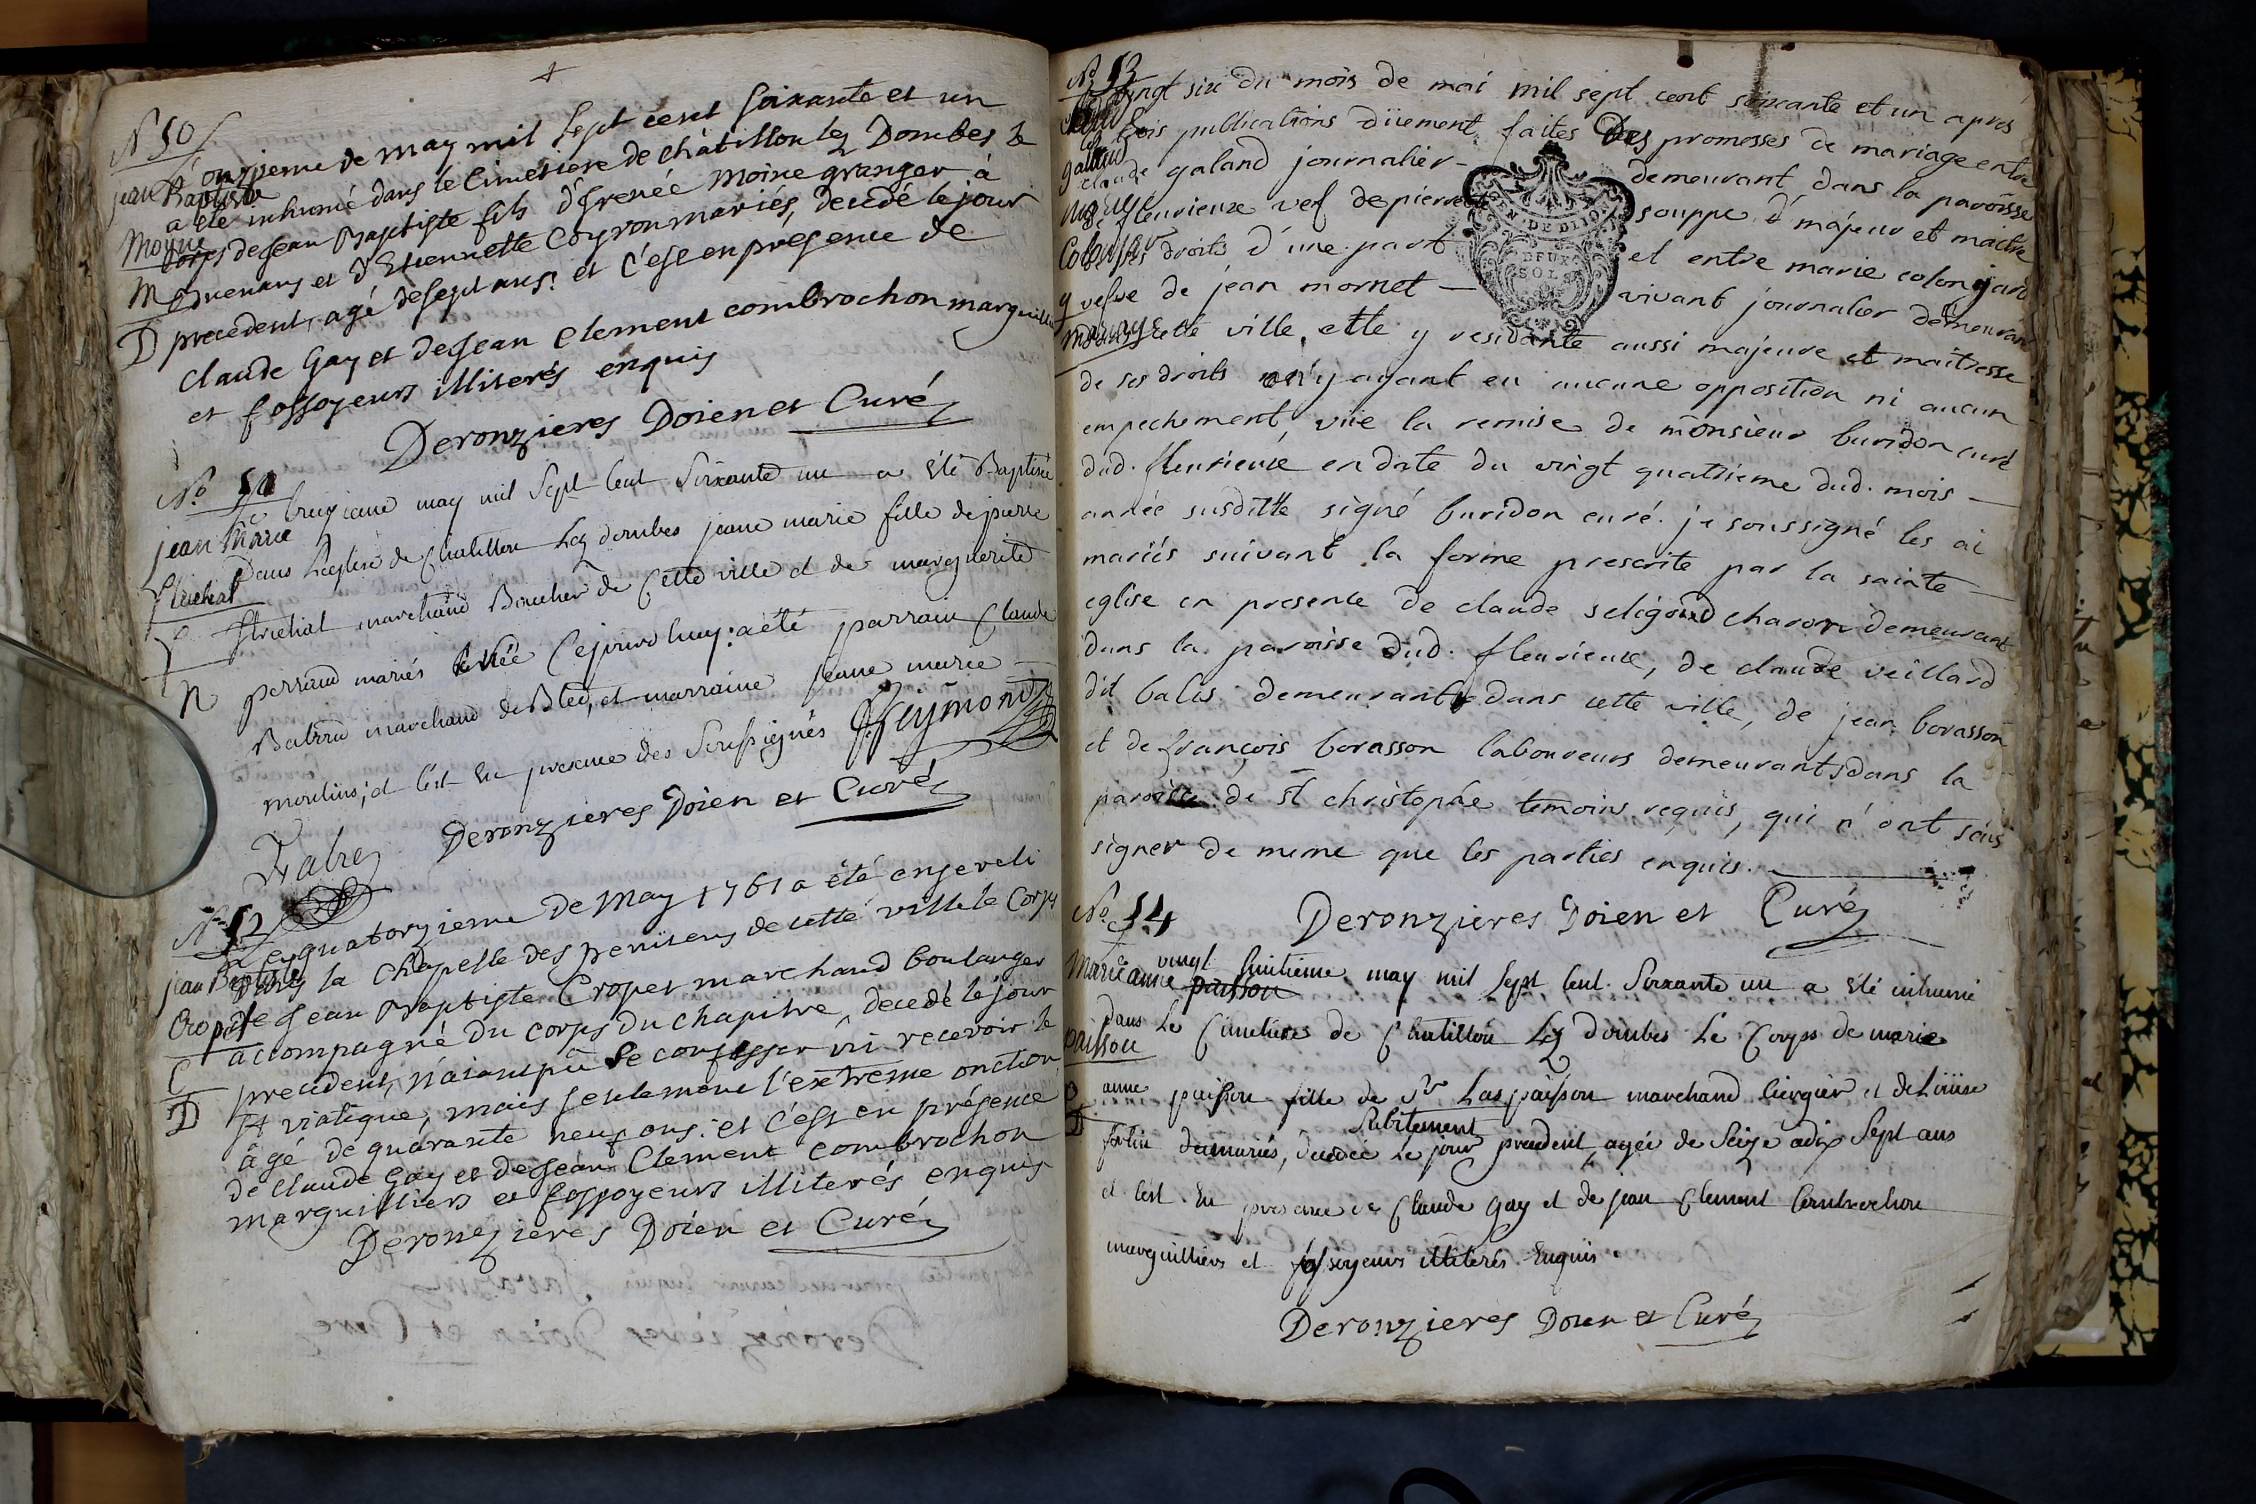 N° 50
jean Baptiste
Moyne
M
D
L'onzieme de may mil sept cent soixante et un
a été inhumé dans le Cimetiere de châtillon lez Dombes le
corps de Jean Baptiste fils d'frenée moine granger à
et d'Etiennette Coyron mariés, decedé le jour
precedent, agé de sept ans. et c'est en présence de
claude Gay et de Jean Clement combrochon marguilliers
et fossoyeurs illiterés enquis
Deronzieres Doien et Curé
N° 51
jean Marie
flechat
f
N
may mil sept cent soixante un a été Baptisée
Dans L'eglise de Chatillon Lez dombes jeane marie fille de pierre
marchand Boucher de Cette ville et de marguerite
perraud mariés Née Cejourd'huy: a été parrain Claude
marchand de Bled, et marraine jeane marie
moulins; et c'est En presence des Soussignés
Deronzieres Doien et Curé
N° 52
jean Baptiste
Cropet
C
D
Le quatorzieme de May 1761 a été enseveli
dans la Chapelle des penitens de cette ville le Corps
de Jean Baptiste Cropet marchand boulanger
accompagné du corps du chapitre, decedé le jour
precedent, n'aiant pû se confesser ni recevoir le
St viatique, mais seulement l'extreme onction
âgé de quarante neuf ans. et c'est en présence
de claude Gay et de Jean Clement combrochon
marguilliers et fossoyeurs illiterés enquis
Deronzieres Doien et Curé
N° 53
galland
Marie
Colonjar
mariage
vingt six du mois de mai mil sept cent soixante et un apres
trois publications düement faites Des promesses de mariage entre
claude galand journalier - demeurant dans la paroisse
de fleurieux vef de pierrette souppe d' majeur et maitre
de ses droits d'une part et entre marie colonjard
vefve de jean mornet - vivant journalier demeurant
cette ville, elle y residante aussi majeure et maitresse
de ses droits n'y ayant eu aucune opposition ni aucun
empechement, vüe la remise de monsieur buridon curé
dud. fleurieux en date du vingt quattrieme dud. mois -
année susditte signé buridon curé. je soussigné les ai
mariés suivant la forme prescrite par la sainte -
eglise en presence de claude seligond charon demeurant
dans la paroisse dud. fleurieux, de claude veillard
dit balis demeurants dans cette ville, de jean borasson
et de françois borasson laboureurs demeurants dans la
paroisse de st christophe temoins requis, qui n'ont sçus
signer de meme que les parties enquis.
GEN. DE DIJON
DEUX
SOLS
Deronzieres Doien et Curé
N° 54
Marie anne
paisson
D
vingt huitieme may mil sept cent soixante un a été inhumé
dans Le Cimetiere de Chatillon Lez dombes Le Corps de marie
anne paisson fille de Sr Las paisson marchand Cirgier et de Loüise
mariés, decedée subitement Le jour precedent, agée de seize a dix sept ans
et c'est En presence de Claude Gay et de jean Clement Combrochon
marguilliers et fossoyeurs illiterés Enquis.
Deronzieres Doien et Curé